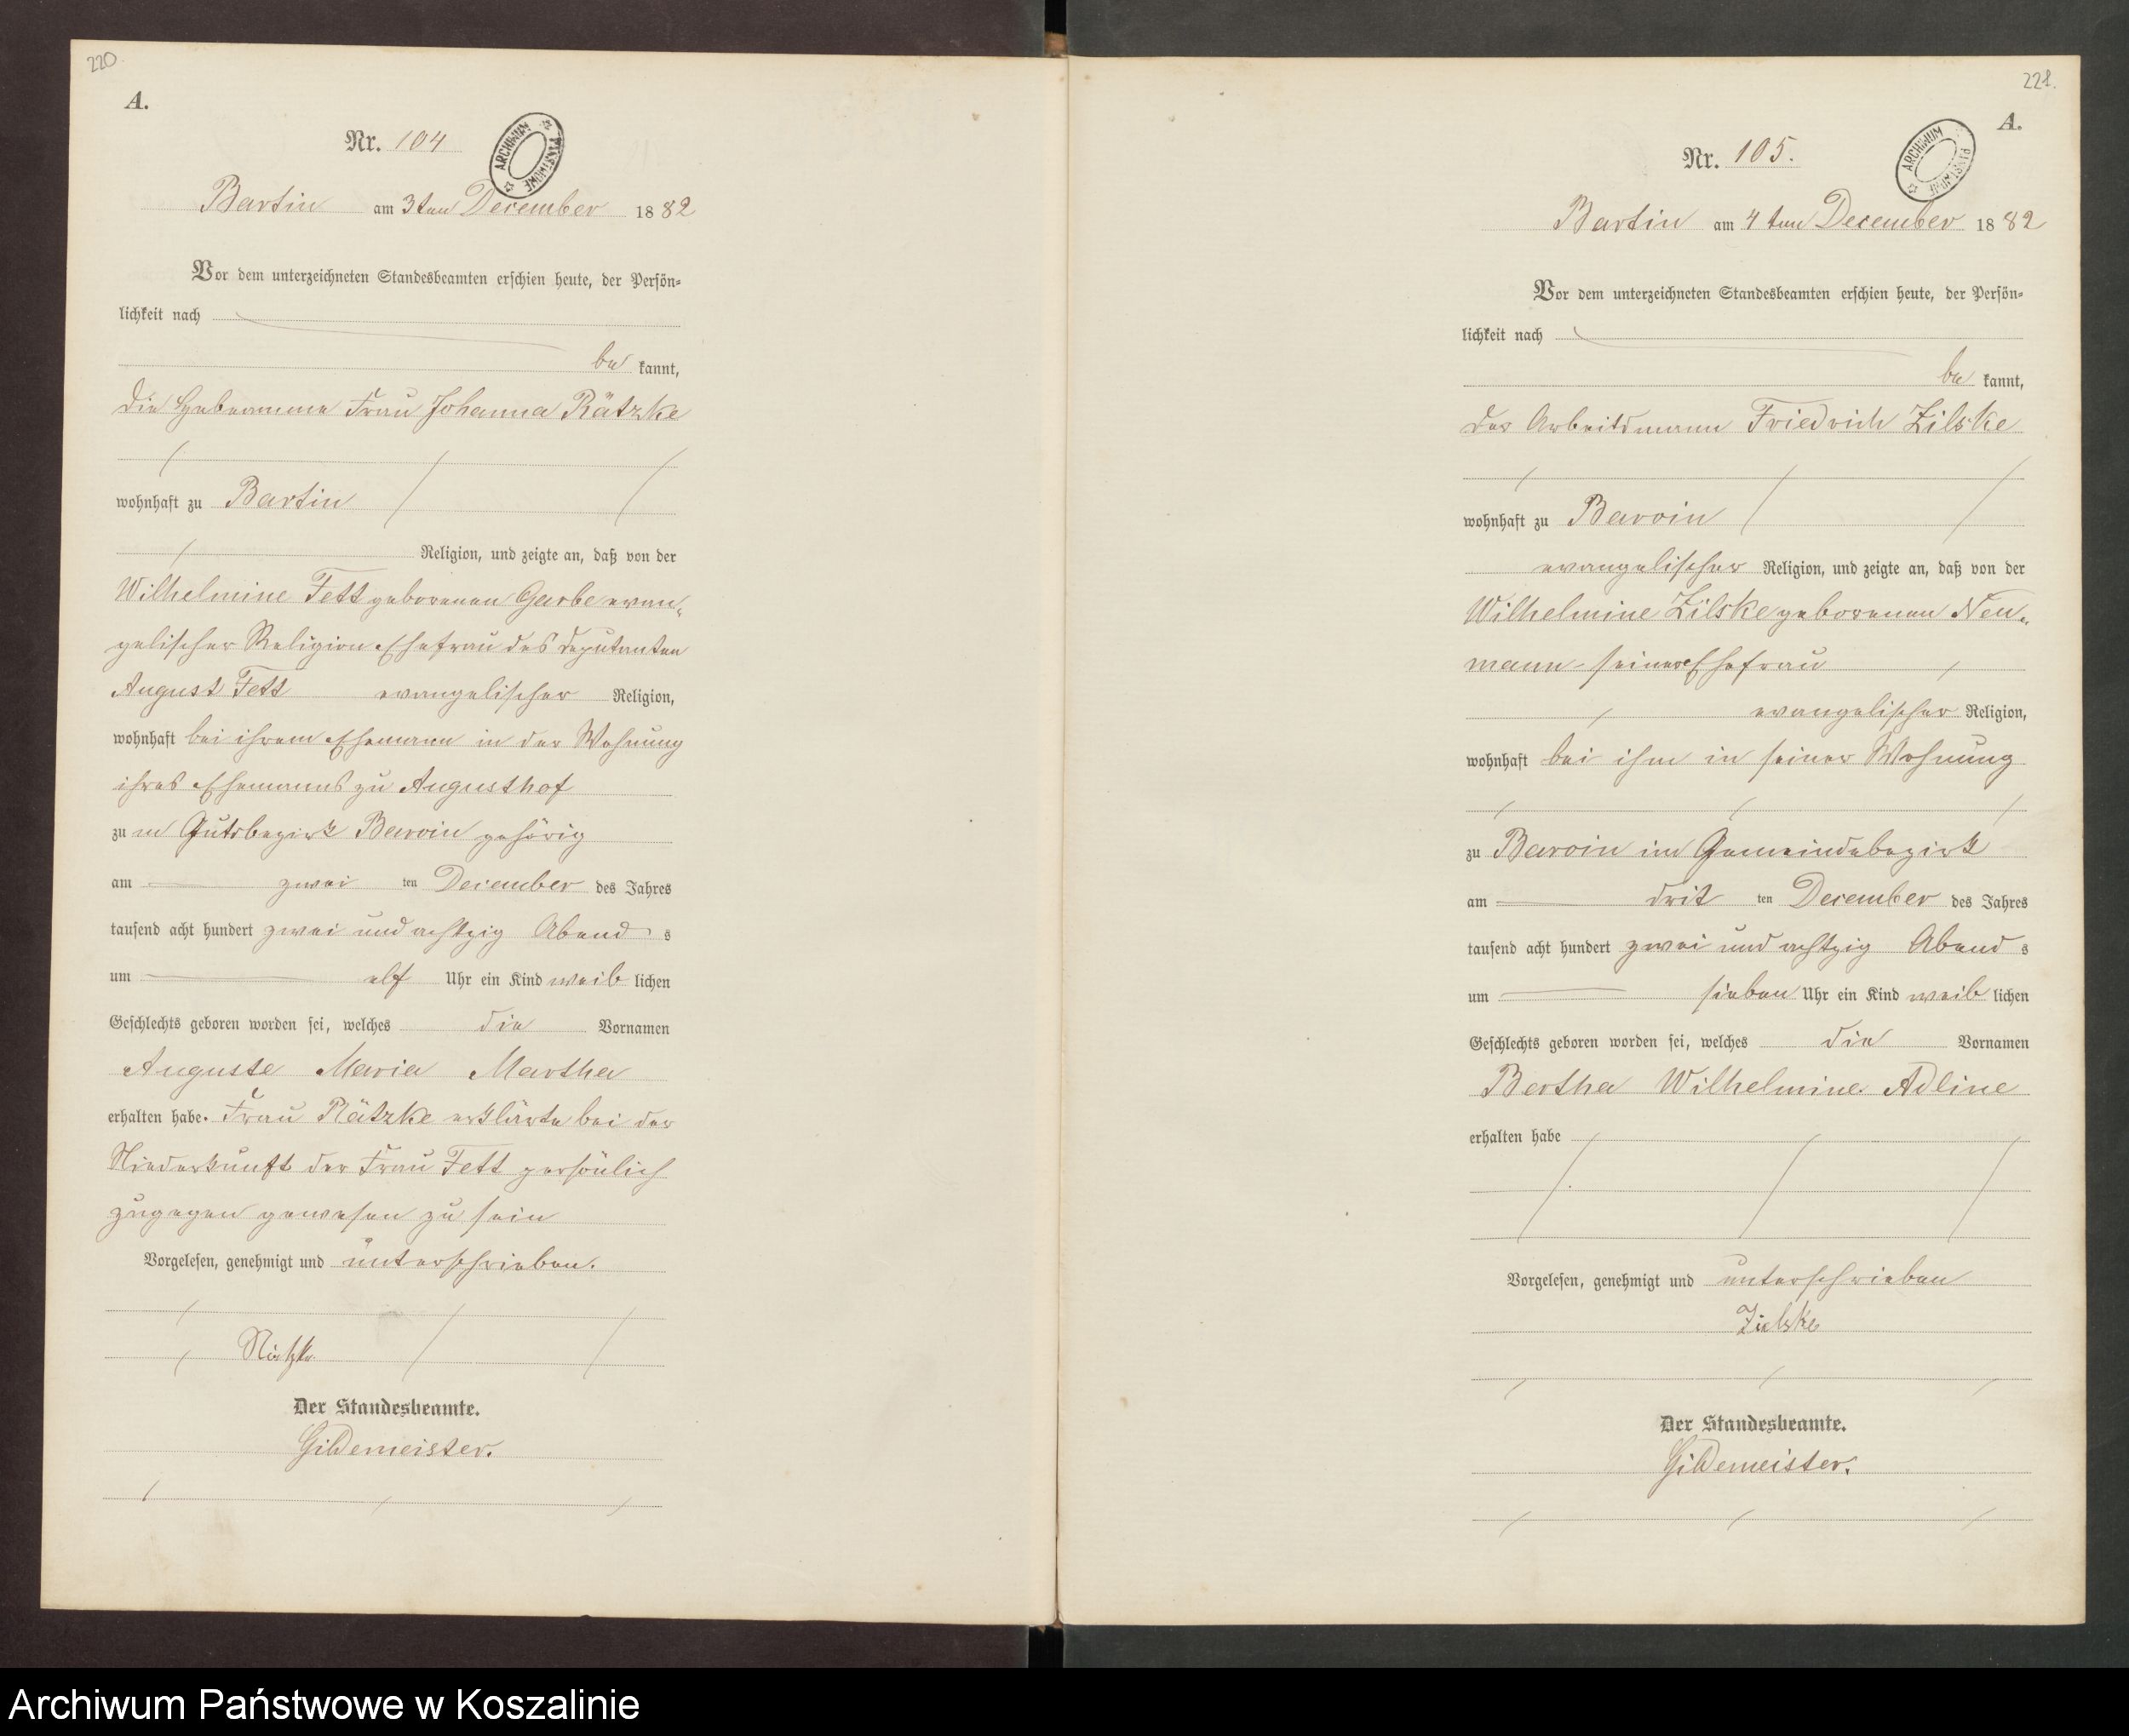 220.
A.
Nr. 104
ARCHIWUM PAŃSTWOWE
Bartin am 3ten December 1882
Vor dem unterzeichneten Standesbeamten erschien heute, der Persön-
lichkeit nach
be kannt,
die Hebeamme Frau Johanna Rätzke
wohnhaft zu Bartin
Religion, und zeigte an, daß von der
Wilhelmine Fett geborenen Garbe evan-
gelischer Religion Ehefrau des Deputanten
August Fett evangelischer Religion,
wohnhaft bei ihrem Ehemann in der Wohnung
ihres Ehemanns zu Augusthof
zu m Gutsbezirk Barvin gehörig
am zwei ten December des Jahres
tausend acht hundert zwei und achtzig Abend s
um elf Uhr ein Kind weib lichen
Geschlechts geboren worden sei, welches die Vornamen
Auguste Maria Martha
erhalten habe. Frau Rätzke erklärte bei der
Niederkunft der Frau Fett persönlich
zugegen gewesen zu sein
Vorgelesen, genehmigt und unterschrieben.
Der Standesbeamte.
Gildemeister.
221.
A.
Nr. 105.
ARCHIWUM PAŃSTWOWE
Bartin am 4 ten December 1882
Vor dem unterzeichneten Standesbeamten erschien heute, der Persön-
lichkeit nach
be kannt,
der Arbeitsmann Friedrich Zilske
wohnhaft zu Barvin
evangelischer Religion, und zeigte an, daß von der
Wilhelmine Zilske geborenen Neu-
mann seiner Ehefrau
evangelischer Religion,
wohnhaft bei ihm in seiner Wohnung
zu Barvin im Gemeindebezirk
am drit ten December des Jahres
tausend acht hundert zwei und achtzig Abend s
um sieben Uhr ein Kind weib lichen
Geschlechts geboren worden sei, welches die Vornamen
Bertha Wilhelmine Adline
erhalten habe
Vorgelesen, genehmigt und unterschrieben
Zielske
Der Standesbeamte.
Gildemeister.
Archiwum Państwowe w Koszalinie